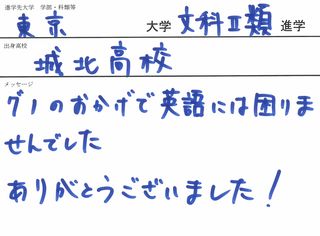 進学先大学 学部・科類等
東京 大学 文科Ⅱ類 進学
出身高校
城北高校
メッセージ
グノのおかげで英語には困りま
せんでした
ありがとうございました!